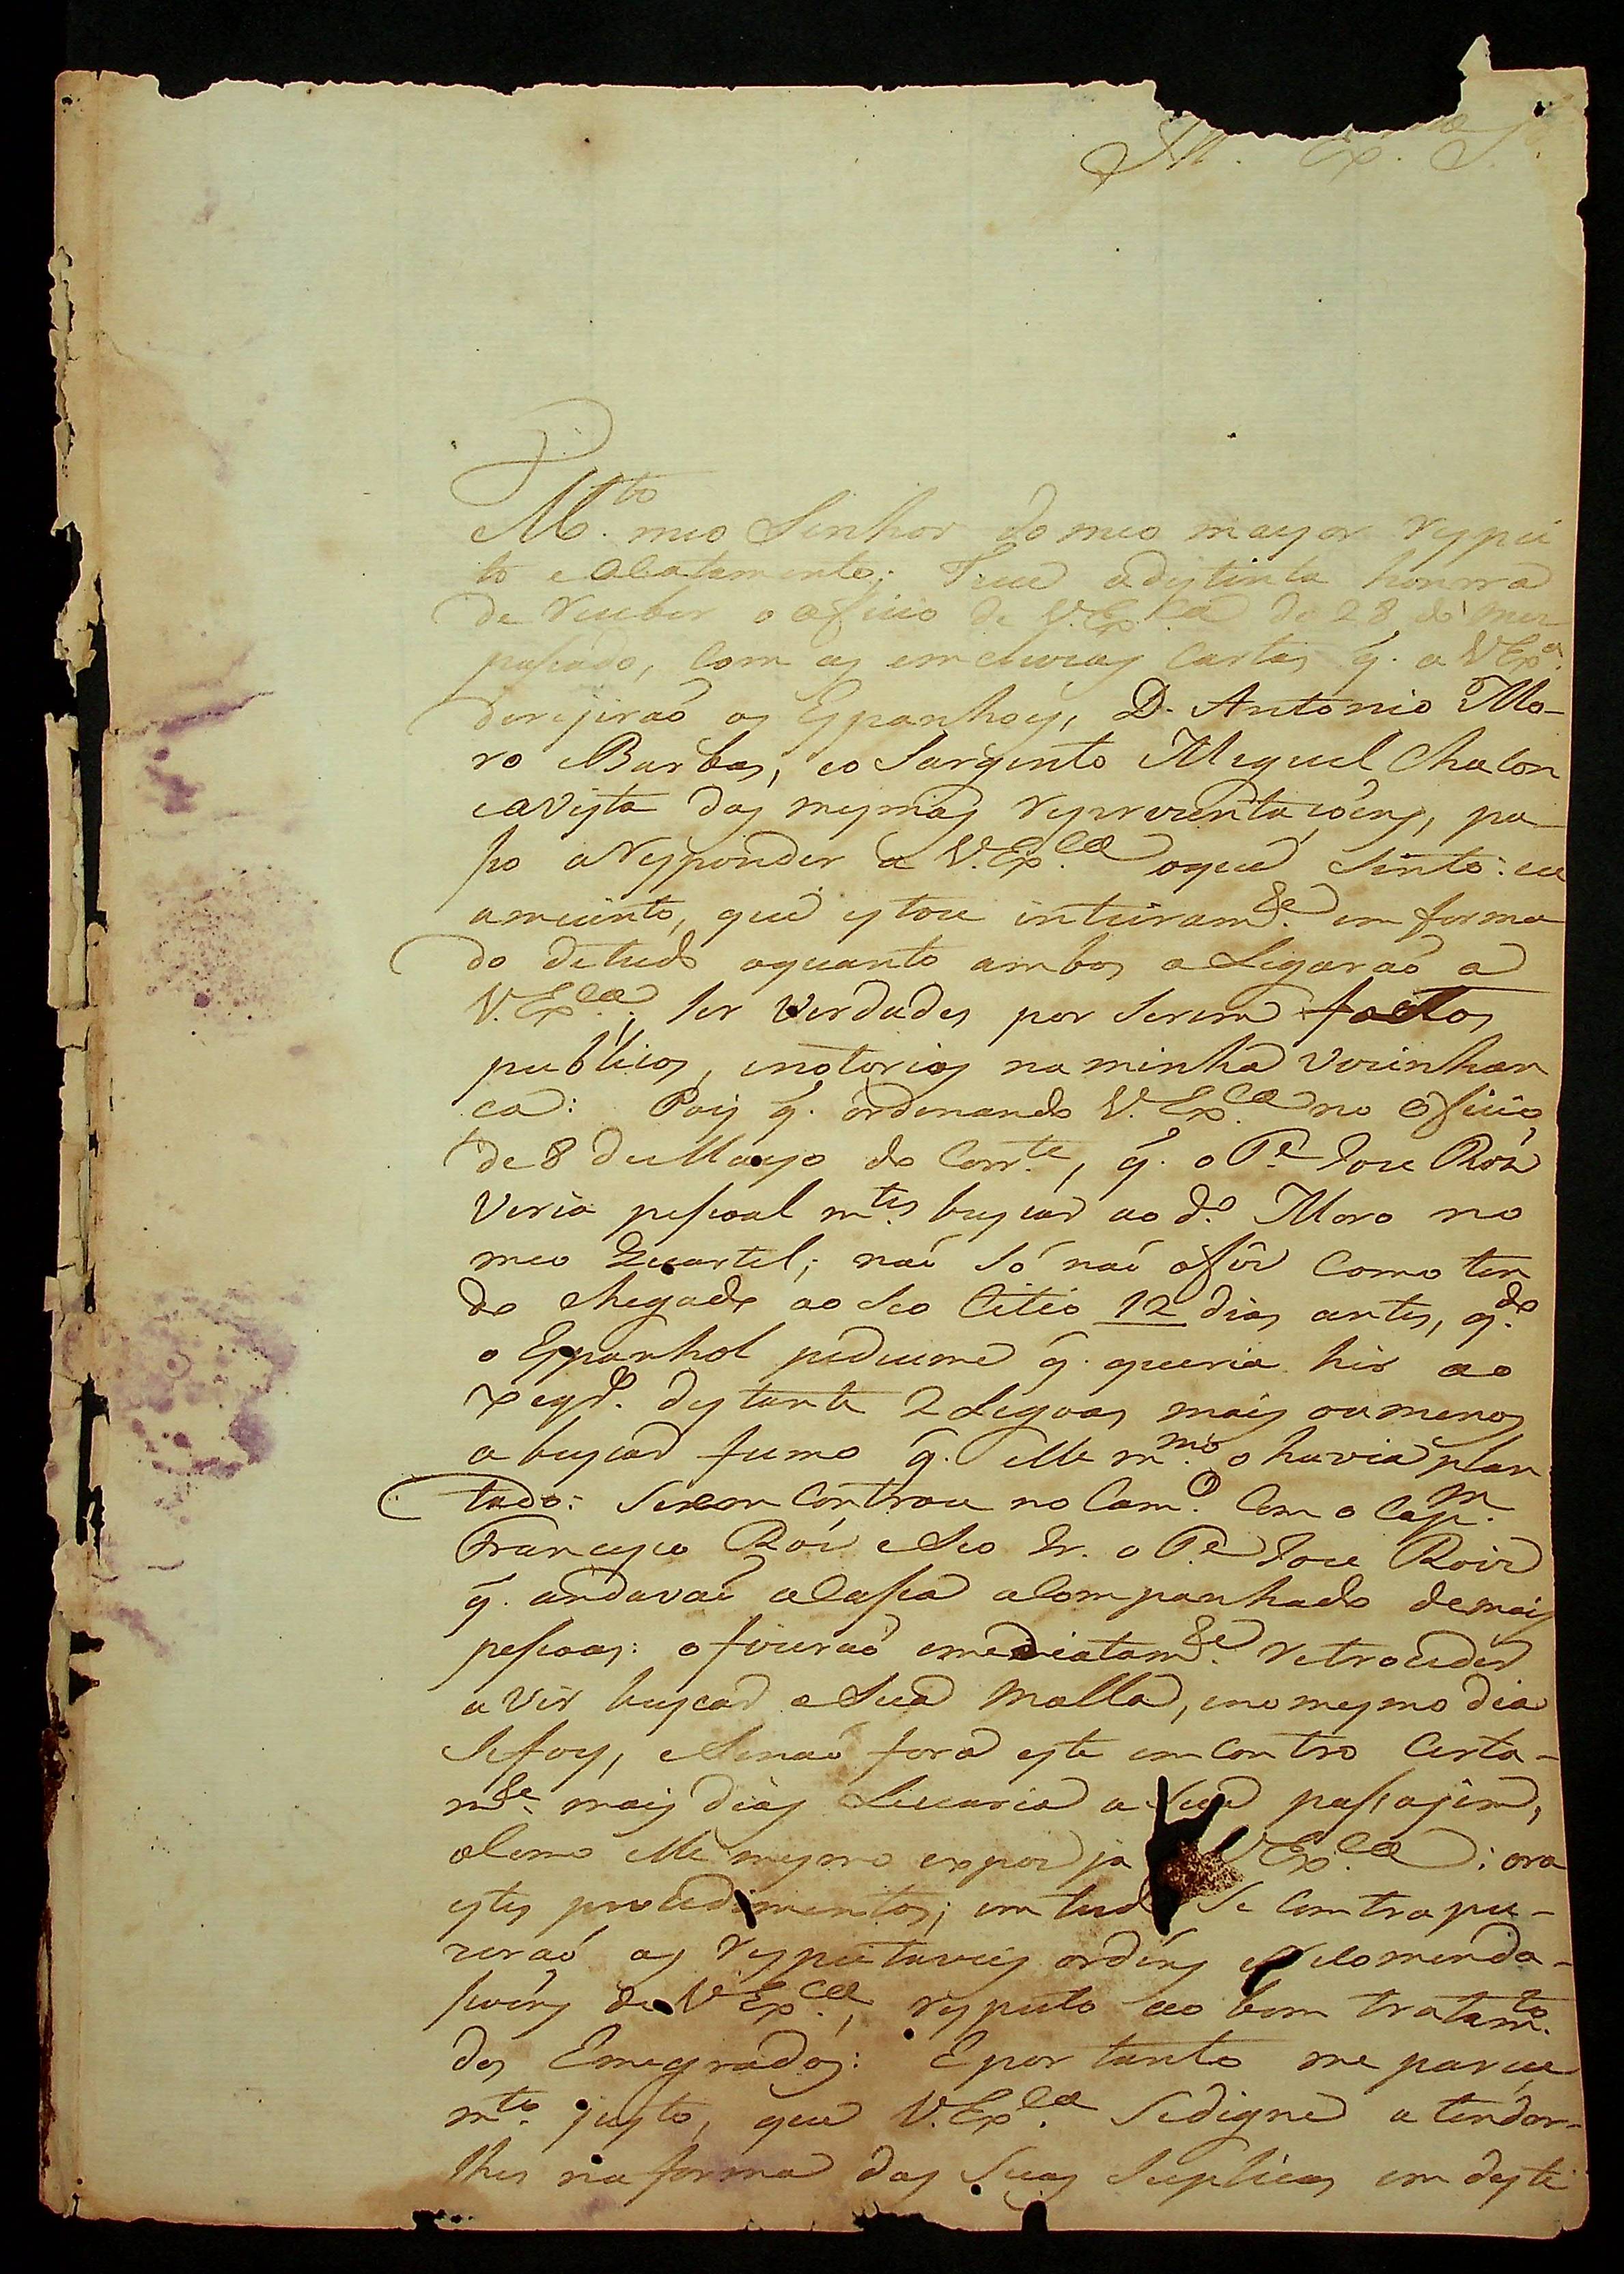 Ill. Ex.mo S.
M.to meo Senhor do meo mayor respei
to e acatamento. Tive a distinta honrra
de receber o oficio de V. Ex.cia de 28 do mez
passado, com as emcluzas cartas q. a V Ex.a
derijiraõ os Espanhoes, D. Antonio Mo-
ro Barbas, e o Sargento Meguel Chalon
e a vista das mesmas reprezentaçoens, pa-
sso a responder a V. Ex.cia o que sinto: eu
amcinto, que estou inteiram.te emforma
do de tudo o quanto ambos alegaraõ a
V. Ex.cia; ser verdades por serem factos
publicos, e notorios na minha vezinhan
ca: Pois q. ordenando V. Ex.cia no oficio
de 8 de Mayo do Corr.te, q. o P.e Joze Roiz
veria pessoal m.te buscar ao d.o Moro no
meo Quartel; naõ só naõ o fes como ten
do chegado ao seo citio 12 dias antes, q.do
o Espanhol pediume q. queria hir ao
distante 2 Legoas mais ou menos
a buscar fumo q. elle m.mo o havia plan
tado: Se em controu no Cam.o Com o Cap.m
Francisco Roiz e Seo Ir. o P.e Joze Roiz
q. andavaõ a cassa acompanhado de mais
pessoas: o fizeraõ emediatam.te retroceder
a vir buscar a Sua Malla, e no mesmo dia
se foy, e Senaõ fora este emcontro Certa-
m.te mais dias a Sua passajem,
como elle mesmo expoz ja V Ex.cia: ora
estes procedimentos; em tudo Se Contrapu-
zeraõ as respeitaveis ordens e recomenda-
soens de V Ex.cia, respeito ao bom tratam.to
dos Emegrados: E por tanto me parece
m.to justo, que V. Ex.cia Se digne atender-
lhes na forma das Suas Suplicas em deste